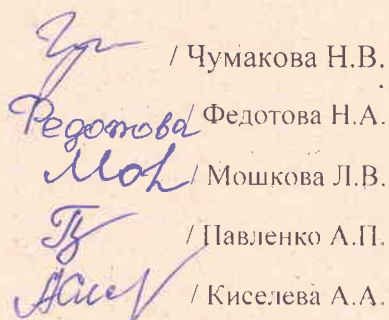 / Чумакова Н.В.
Федотова / Федотова Н.А.
/ Мошкова Л.В.
/ Павленко А.П.
/ Киселева А.А.